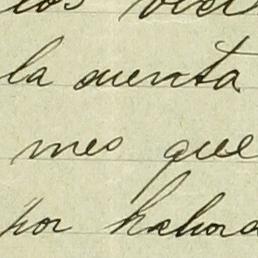 los
la cuenta
mes que
por haber